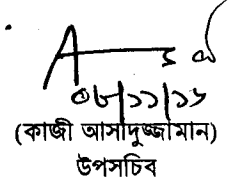 ০৮/১১/১৬
(কাজী আসাদুজ্জামান)
উপসচিব